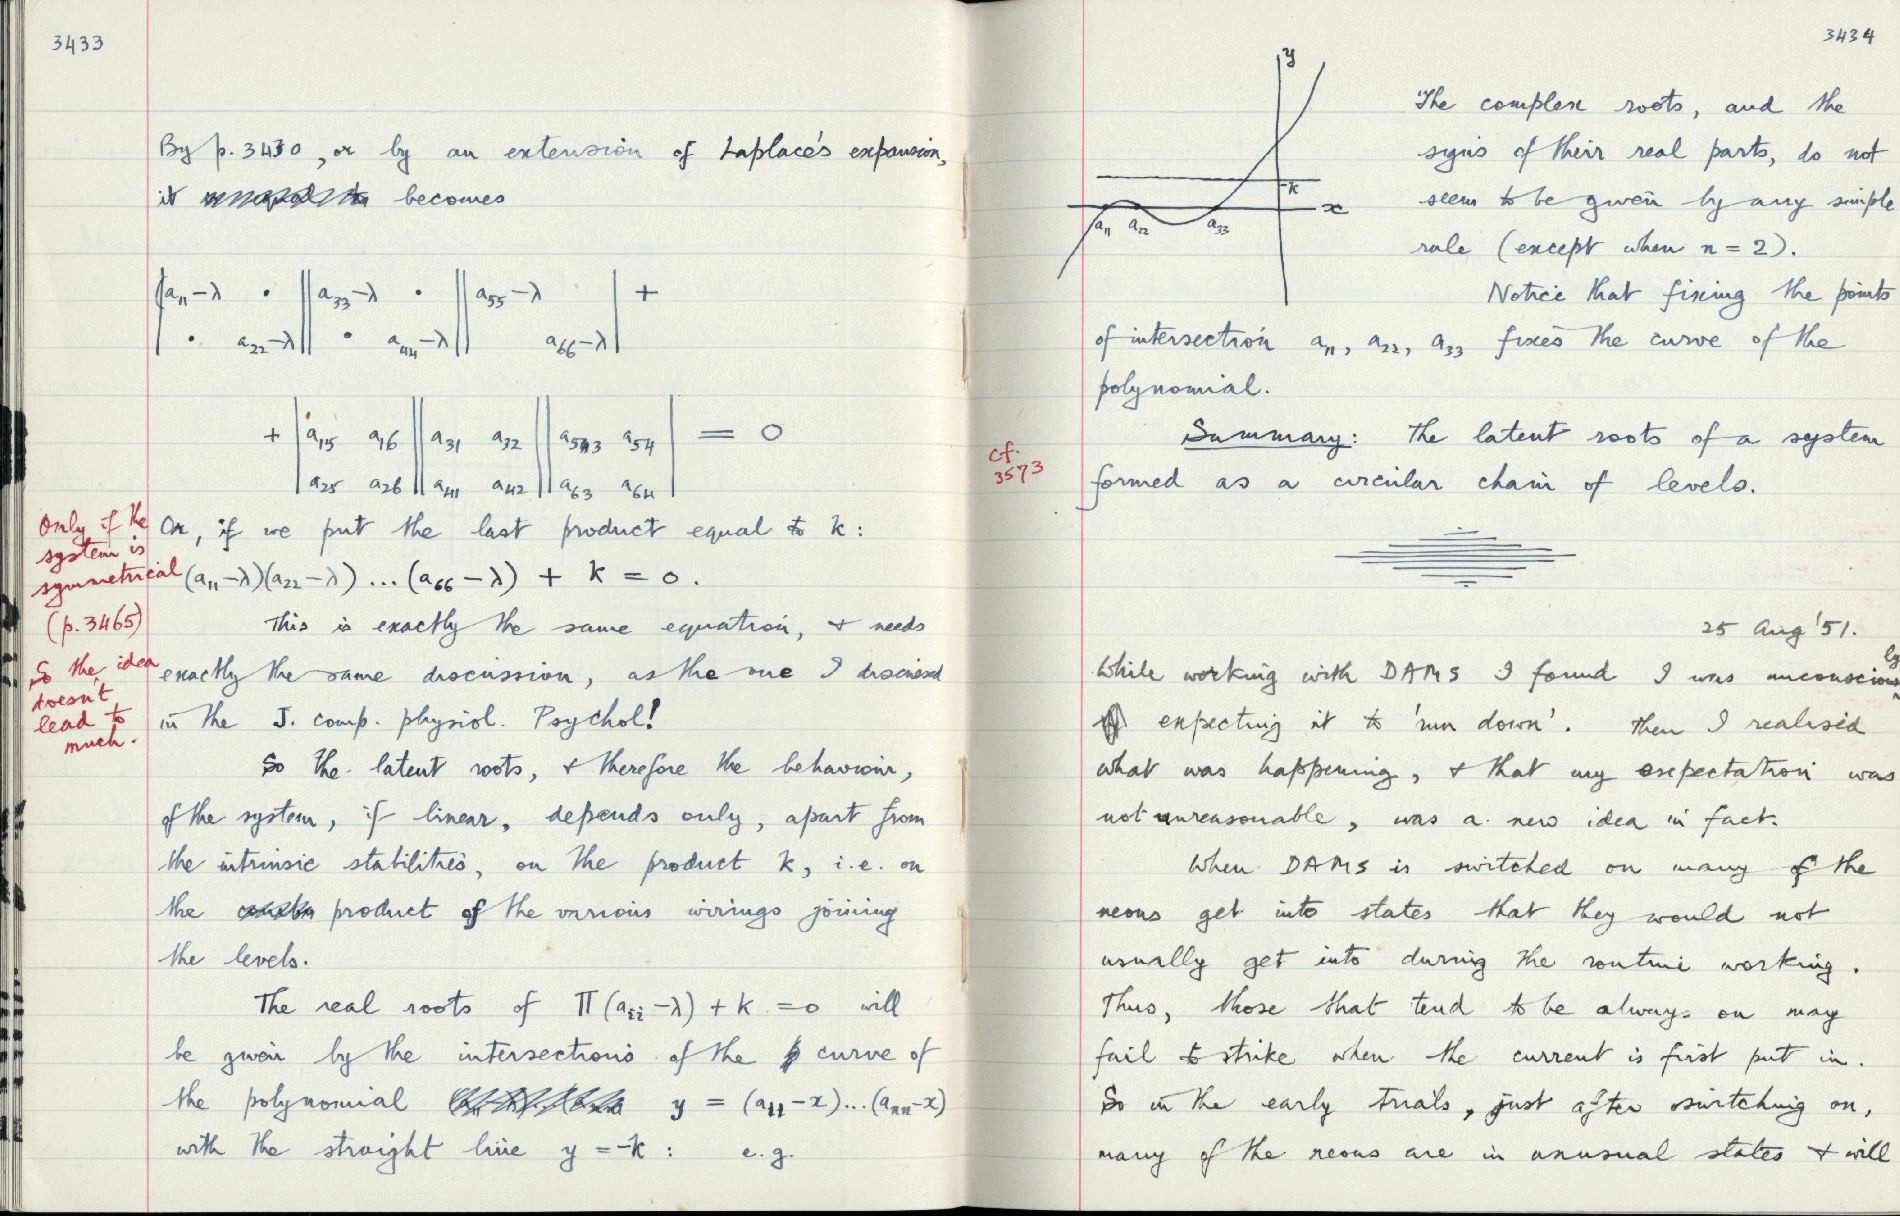 3433
By p. 3430, or by an extension of Laplace's expansion,
it becomes
| a₁₁−λ · || a₃₃−λ · || a₅₅−λ · | +
| · a₂₂−λ || · a₄₄−λ || a₆₆−λ |
+ | a₁₅ a₁₆ || a₃₁ a₃₂ || a₅₃ a₅₄ | = 0
| a₂₅ a₂₆ || a₄₁ a₄₂ || a₆₃ a₆₄ |
Or, if we put the last product equal to k:
(a₁₁−λ)(a₂₂−λ)...(a₆₆−λ) + k = 0.
Only if the
system is
symmetrical
(p.3465)
So the idea
doesn't
lead to
much.
This is exactly the same equation, & needs
exactly the same discussion, as the one I discussed
in the J. comp. physiol. Psychol!
So the latent roots, & therefore the behaviour,
of the system, if linear, depends only, apart from
the intrinsic stabilities, on the product k, i.e. on
the product of the various wirings joining
the levels.
The real roots of Π(aᵢᵢ−λ) + k = 0 will
be given by the intersections of the curve of
the polynomial y = (a₁₁−x)...(aₙₙ−x)
with the straight line y = −k: e.g.
3434
y
−k
x
a₁₁ a₂₂ a₃₃
The complex roots, and the
signs of their real parts, do not
seem to be given by any simple
rule (except when n = 2).
Notice that fixing the points
of intersection a₁₁, a₂₂, a₃₃ fixes the curve of the
polynomial.
Summary: The latent roots of a system
formed as a circular chain of levels.
cf.
3573
25 Aug '51.
While working with DAMS I found I was unconsciously
expecting it to 'run down'. Then I realised
what was happening, & that my expectation was
not unreasonable, was a new idea in fact.
When DAMS is switched on many of the
neons get into states that they would not
usually get into during the routine working.
Thus, those that tend to be always on may
fail to strike when the current is first put in.
So in the early trials, just after switching on,
many of the neons are in unusual states & will